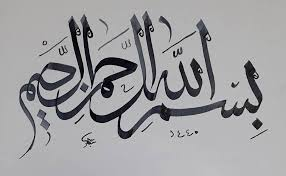 بِسْمِ اللّٰهِ الرَّحْمٰنِ الرَّحِيْمِ
١٤٤٠